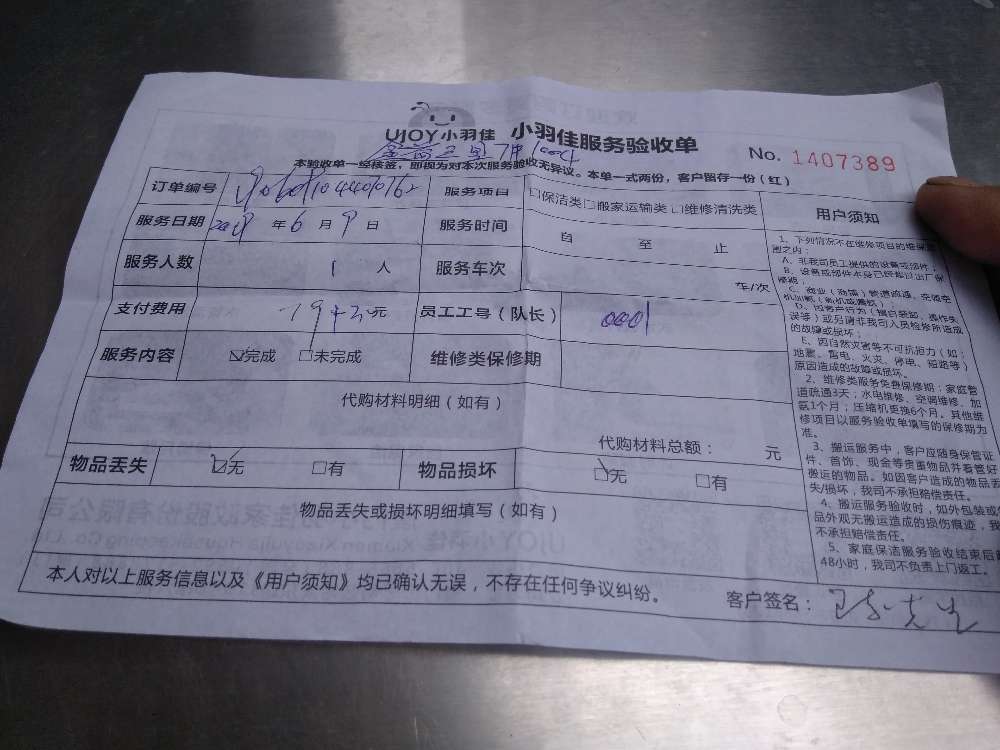 UJOY小羽佳 小羽佳服务验收单
No. 1407389
本验收单一经核签，即视为对本次服务验收无异议。本单一式两份，客户留存一份（红）
订单编号 服务项目 □保洁类□搬家运输类□维修清洗类
服务日期 年 6 月 9 日 服务时间 自 至 止
服务人数 1 人 服务车次 车/次
支付费用 元 员工工号（队长） 0001
服务内容 ☑完成 □未完成 维修类保修期
代购材料明细（如有）
代购材料总额： 元
物品丢失 ☑无 □有 物品损坏 ☑无 □有
物品丢失或损坏明细填写（如有）
本人对以上服务信息以及《用户须知》均已确认无误，不存在任何争议纠纷。
客户签名： 先生
用户须知
1、下列情况不在维修项目的维保范
围之内：
A、非我司员工提供的设备或部件；
B、设备或部件本身已经超过出厂保
修期；
D、因客户行为（擅自装卸、操作失
误等）或另请非我司人员检修所造成
的故障或损坏；
E、因自然灾害等不可抗拒力（如：
地震、雷电、火灾、停电、短路等）
原因造成的故障或损坏。
2、维修类服务免费保修期：家庭管
道疏通3天；水电维修、空调维修、加
氨1个月；压缩机更换6个月。其他维
修项目以服务验收单填写的保修期为
准。
3、搬运服务中，客户应随身保管证
件、首饰、现金等贵重物品并看管好
搬运的物品。如因客户造成的物品丢
失/损坏，我司不承担赔偿责任。
4、搬运服务验收时，如外包装或
品外观无搬运造成的损伤痕迹，我
不承担赔偿责任。
5、家庭保洁服务验收结束后
48小时，我司不负责上门返工。